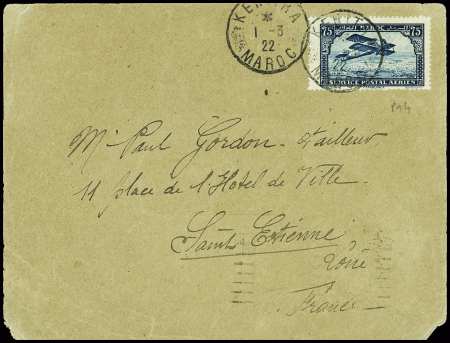 KENITRA
1-3
22
MAROC
KENIT
22
75 75
SERVICE POSTAL AÉRIEN
PA4
Mr Paul Gordon. tailleur
11 place de l'Hotel de Ville.
Saint Etienne
Loire
France